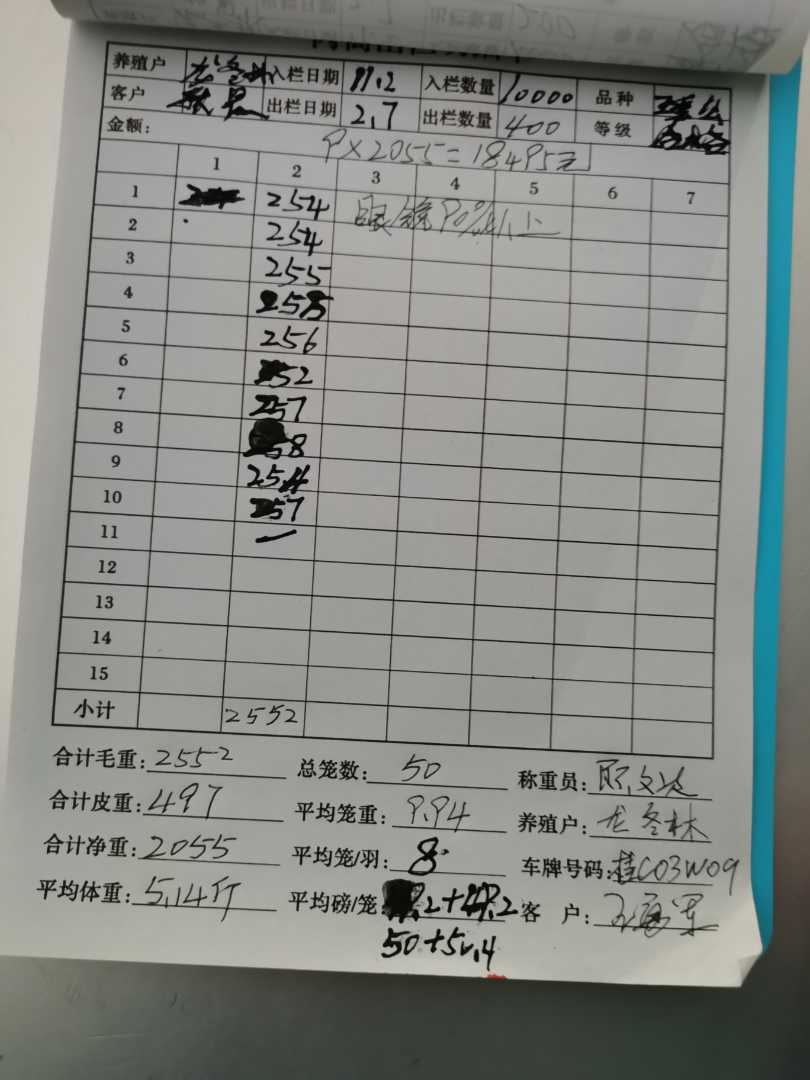 养殖户 龙冬林 入栏日期 11.2 入栏数量 10000 品种
客户 出栏日期 2.7 出栏数量 400 等级
金额: 9×2055=18495元
1 2 3 4 5 6 7
1 254 眼镜90%以上
2 254
3 255
4 255
5 256
6 252
7 257
8 258
9 254
10 257
11
12
13
14
15
小计 2552
合计毛重: 2552 总笼数: 50 称重员:
合计皮重: 497 平均笼重: 9.94 养殖户: 龙冬林
合计净重: 2055 平均笼/羽: 8 车牌号码: 桂C03W09
平均体重: 5.14斤 平均磅/笼: 客 户:
50+50.4